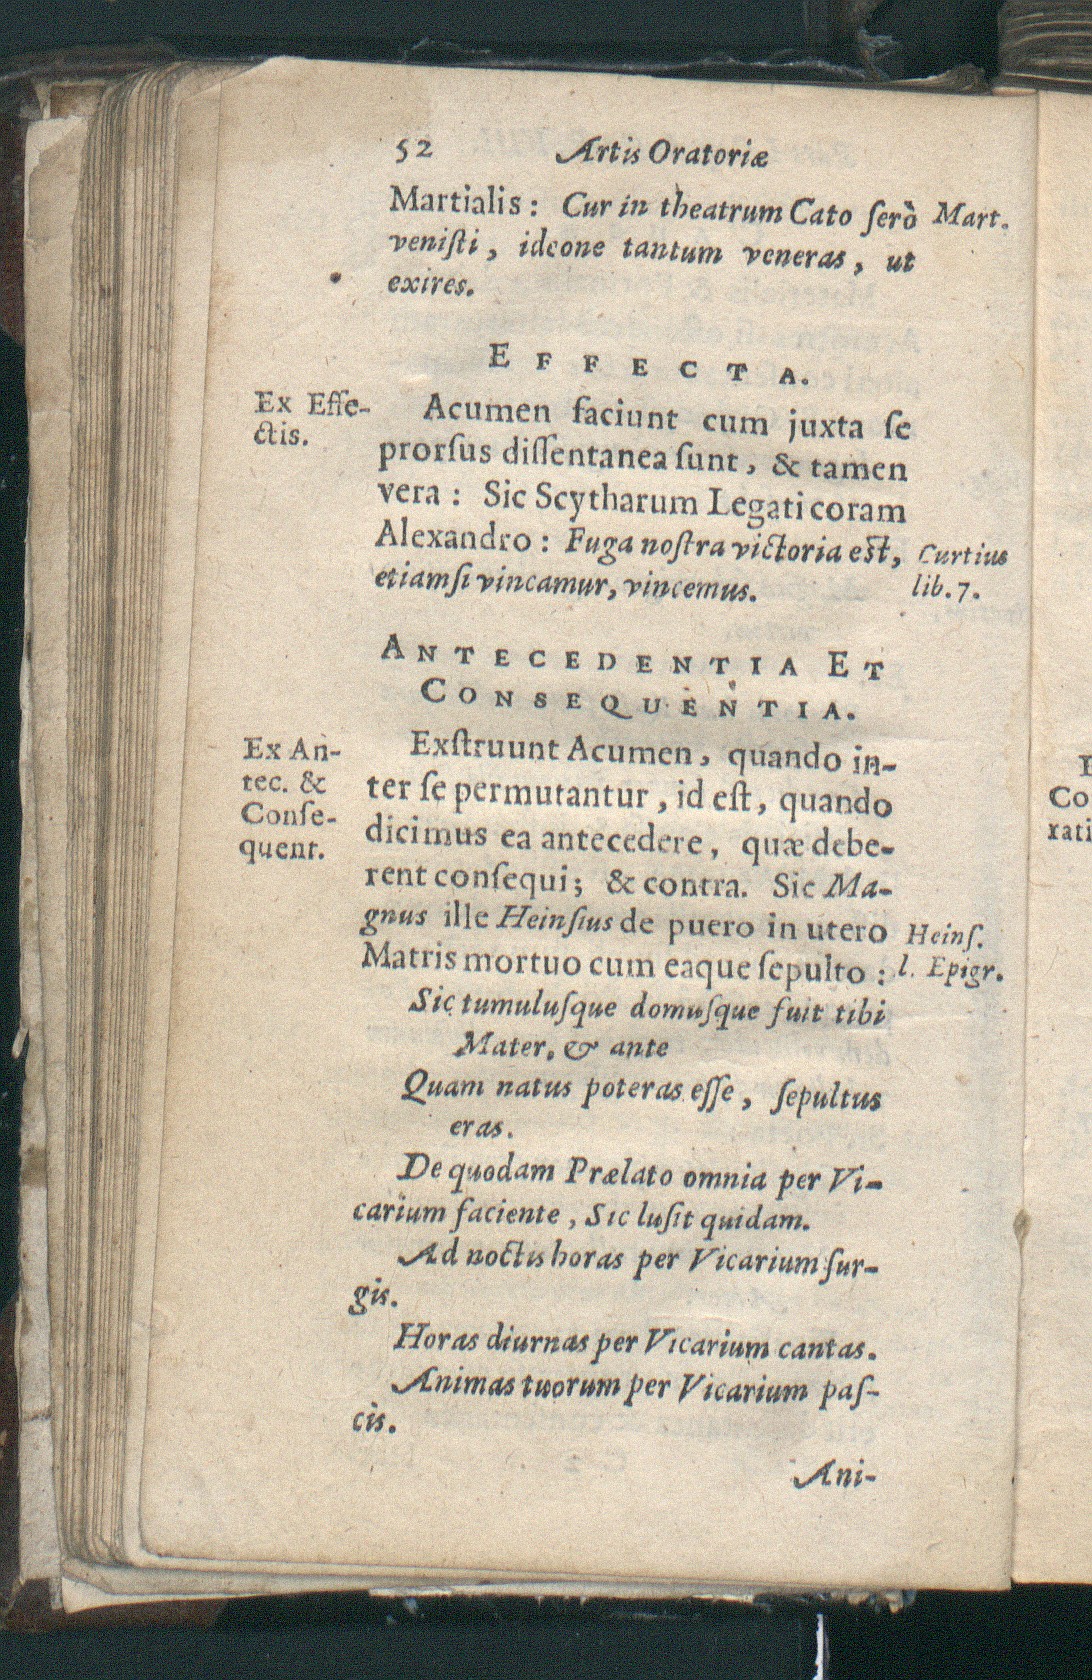 52 Artis Oratoriæ
Martialis: Cur in theatrum Cato ſerò
Mart.
veniſti, ideone tantum veneras, ut
exires.
EFFECTA.
Ex Effe-
ctis.
Acumen faciunt cum juxta ſe
prorſus diſſentanea ſunt, & tamen
vera: Sic Scytharum Legati coram
Alexandro: Fuga noſtra victoria eſt,
etiamſi vincamur, vincemus.
Curtius
lib. 7.
ANTECEDENTIA ET
CONSEQUENTIA.
Ex An-
tec. &
Conſe-
quent.
Exſtruunt Acumen, quando in-
ter ſe permutantur, id eſt, quando
dicimus ea antecedere, quæ debe-
rent conſequi; & contra. Sic Ma-
gnus ille Heinſius de puero in utero
Matris mortuo cum eaque ſepulto:
Heinſ.
l. Epigr.
Sic tumuluſque domuſque fuit tibi
Mater, & ante
Quam natus poteras eſſe, ſepultus
eras.
De quodam Prælato omnia per Vi-
carium faciente, Sic luſit quidam.
Ad noctis horas per Vicarium ſur-
gis.
Horas diurnas per Vicarium cantas.
Animas tuorum per Vicarium paſ-
cis.
Ani-
Co
rati